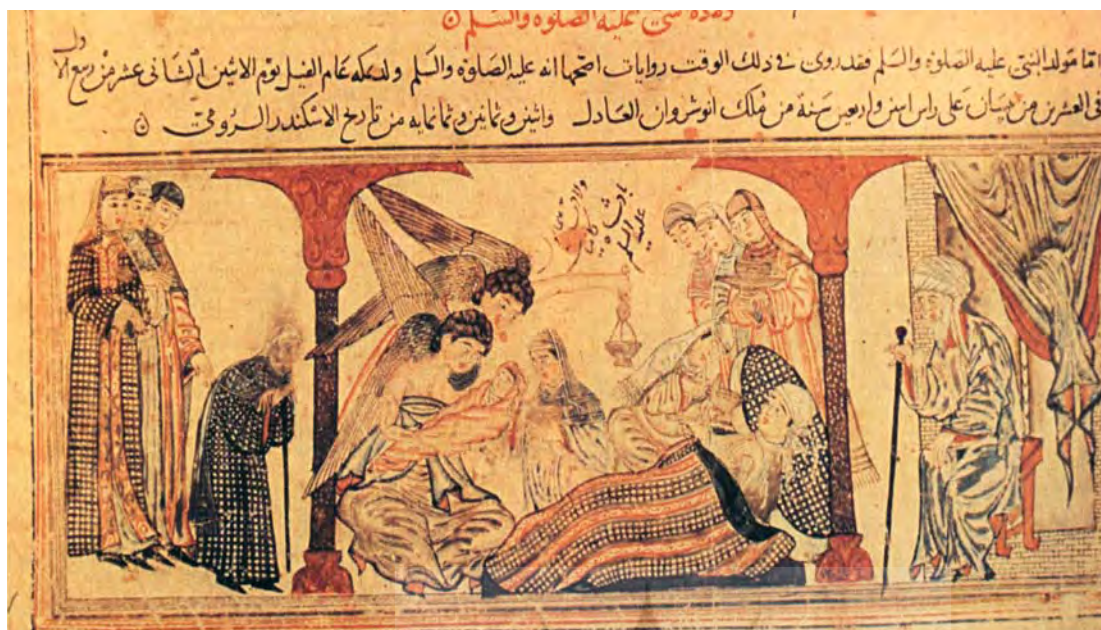 عليه الصلوة والسلم
امّا مَولد النبىّ عليه الصَلوة والسَلم فقد روى فى ذلك الوقت روايات اصحها انه عليه الصلوة والسلم ولد بمكه عام الفيل يوم الاثنين الثانى عشر من ربيع الاول
فى العشرين من نيسان على راس اثنين واربعين سَنة من مُلك انوشروان العَادل واثنين وثمانين وثمانمايه من تاريخ الاسكندر الرومى
ولادت
بادشاه
عليه السلم